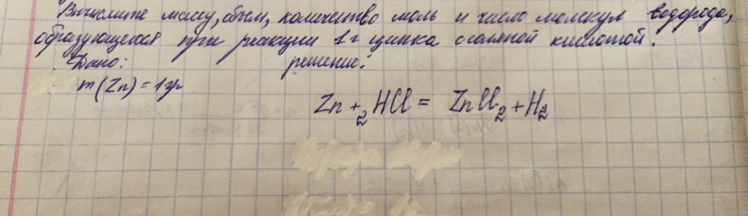 Вычислите массу, объем, количество моль и число молекул водорода,
образующегося при реакции 1 г цинка с соляной кислотой.
Дано: решение:
m(Zn) = 1гр
Zn + 2HCl = ZnCl2 + H2